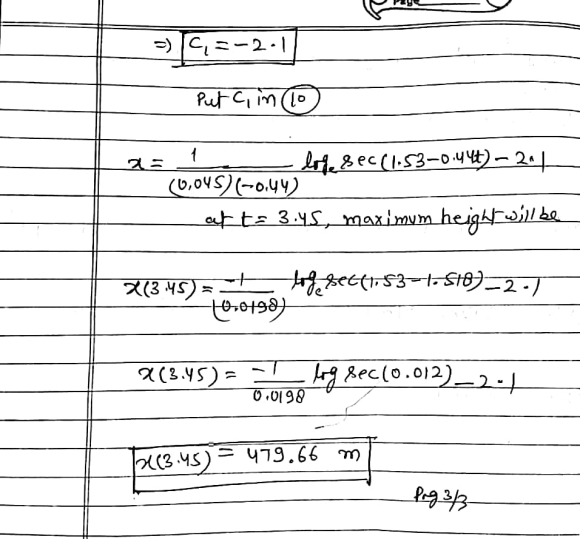 Page
⇒ C₁ = -2.1
Put C₁ in (10)
x = 1/((0.045)(-0.44)) logₑ sec(1.53-0.44t) - 2.1
at t = 3.45, maximum height will be
x(3.45) = -1/(0.0198) logₑ sec(1.53-1.518) - 2.1
x(3.45) = -1/0.0198 log sec(0.012) - 2.1
x(3.45) = 479.66 m
Pag 3/3